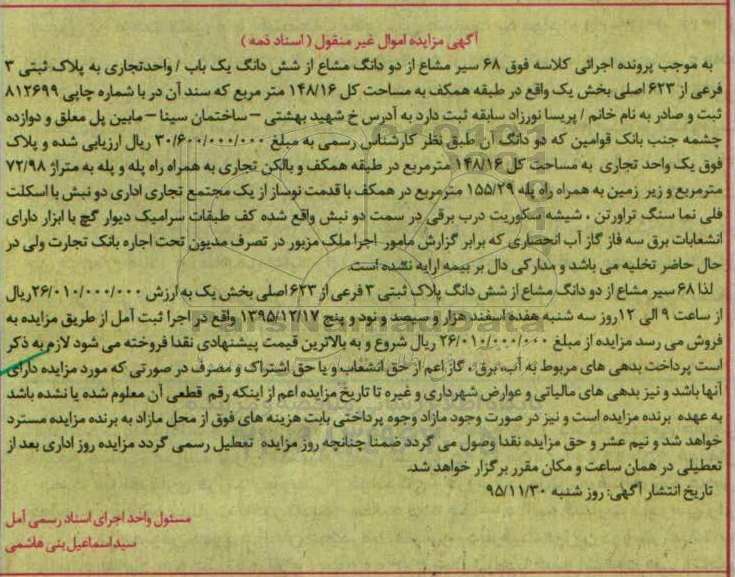 آگهی مزایده اموال غیر منقول ( اسناد ذمه )
به موجب پرونده اجرائی کلاسه فوق ۶۸ سیر مشاع از دو دانگ مشاع از شش دانگ یک باب / واحدتجاری به پلاک ثبتی ۳
فرعی از ۶۲۳ اصلی بخش یک واقع در طبقه همکف به مساحت کل ۱۴۸/۱۶ متر مربع که سند آن در با شماره چاپی ۸۱۲۶۹۹
ثبت و صادر به نام خانم / پریسا نورزاد سابقه ثبت دارد به آدرس خ شهید بهشتی – ساختمان سینا – مابین پل معلق و دوازده
چشمه جنب بانک قوامین که دو دانگ آن طبق نظر کارشناس رسمی به مبلغ ۳۰/۶۰۰/۰۰۰/۰۰۰ ریال ارزیابی شده و پلاک
فوق یک واحد تجاری به مساحت کل ۱۴۸/۱۶ مترمربع در طبقه همکف و بالکن تجاری به همراه راه پله و پله به متراژ ۷۲/۹۸
مترمربع و زیر زمین به همراه راه پله ۱۵۵/۲۹ مترمربع در همکف با قدمت نوساز از یک مجتمع تجاری اداری دو نبش با اسکلت
فلی نما سنگ تراورتن ، شیشه سکوریت درب برقی در سمت دو نبش واقع شده کف طبقات سرامیک دیوار گچ با ابزار دارای
انشعابات برق سه فاز گاز آب انحصاری که برابر گزارش مامور اجرا ملک مزبور در تصرف مدیون تحت اجاره بانک تجارت ولی در
حال حاضر تخلیه می باشد و مدارکی دال بر بیمه ارایه نشده است.
لذا ۶۸ سیر مشاع از دو دانگ مشاع از شش دانگ پلاک ثبتی ۳ فرعی از ۶۲۳ اصلی بخش یک به ارزش ۲۶/۰۱۰/۰۰۰/۰۰۰ریال
از ساعت ۹ الی ۱۲روز سه شنبه هفده اسفند هزار و سیصد و نود و پنج ۱۳۹۵/۱۲/۱۷ واقع در اجرا ثبت آمل از طریق مزایده به
فروش می رسد مزایده از مبلغ ۲۶/۰۱۰/۰۰۰/۰۰۰ ریال شروع و به بالاترین قیمت پیشنهادی نقدا فروخته می شود لازم به ذکر
است پرداخت بدهی های مربوط به آب، برق ، گاز اعم از حق انشعاب و یا حق اشتراک و مصرف در صورتی که مورد مزایده دارای
آنها باشد و نیز بدهی های مالیاتی و عوارض شهرداری و غیره تا تاریخ مزایده اعم از اینکه رقم قطعی آن معلوم شده یا نشده باشد
به عهده برنده مزایده است و نیز در صورت وجود مازاد وجوه پرداختی بابت هزینه های فوق از محل مازاد به برنده مزایده مسترد
خواهد شد و نیم عشر و حق مزایده نقدا وصول می گردد ضمنا چنانچه روز مزایده تعطیل رسمی گردد مزایده روز اداری بعد از
تعطیلی در همان ساعت و مکان مقرر برگزار خواهد شد.
تاریخ انتشار آگهی: روز شنبه ۹۵/۱۱/۳۰
مسئول واحد اجرای اسناد رسمی آمل
سیداسماعیل بنی هاشمی